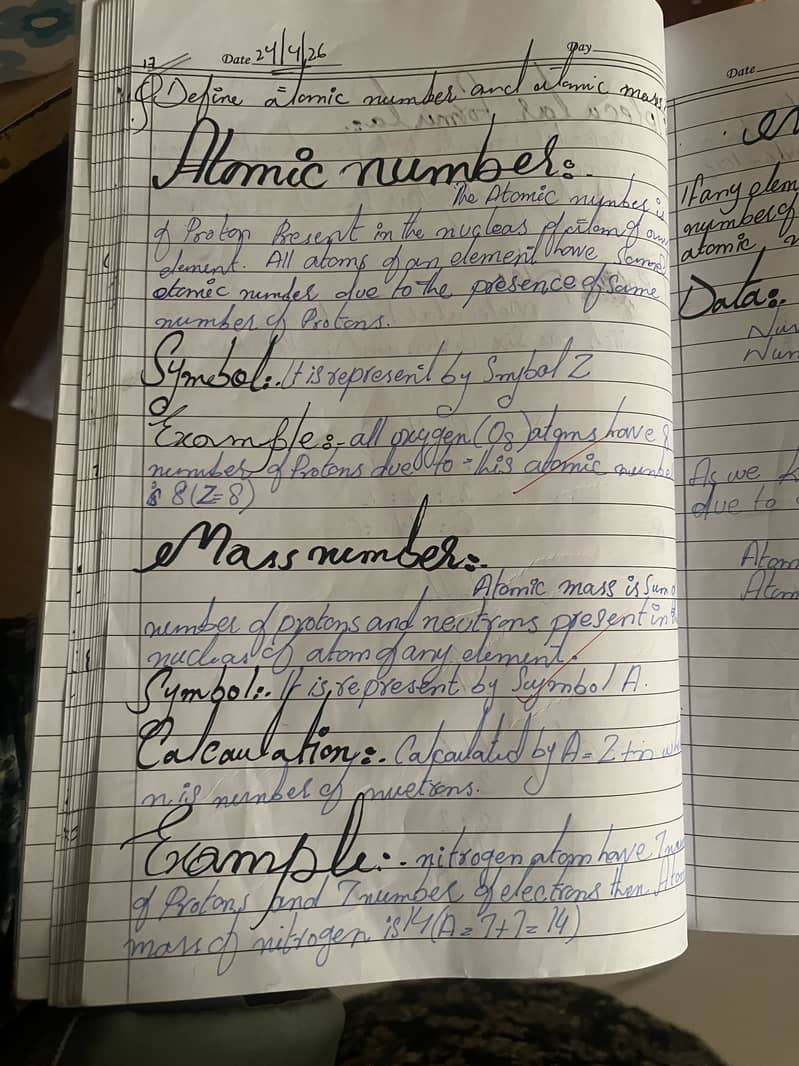 17 Date 24/4/26 Day
Q Define atomic number and atomic mass
Atomic number:-
The Atomic number is
of Proton Present in the nucleas of atom of an
element. All atoms of an element have same
atomic number due to the presence of same
number of Protons.
Symebol:- It is represent by Smybol Z
Example:- all oxygen (O8) atoms have 8
number of Protons due to this atomic number
is 8 (Z=8)
Mass number:-
Atomic mass is Sum o
number of protons and neutrons present in th
nucleas of atom of any element.
Symbol:- It is, represent by Suymbol A.
Calcaulation:- Calcaulated by A = Z + n wh
n is number of nuetrons.
Example:- nitrogen atom have 7 num
of Protons and 7 number of electrons then Atom
mass of nitrogen is 14 (A = 7+7 = 14)
Date
If any elem
number of
atomic,
Data:-
Num
Num
As we k
due to
Atom
Atom